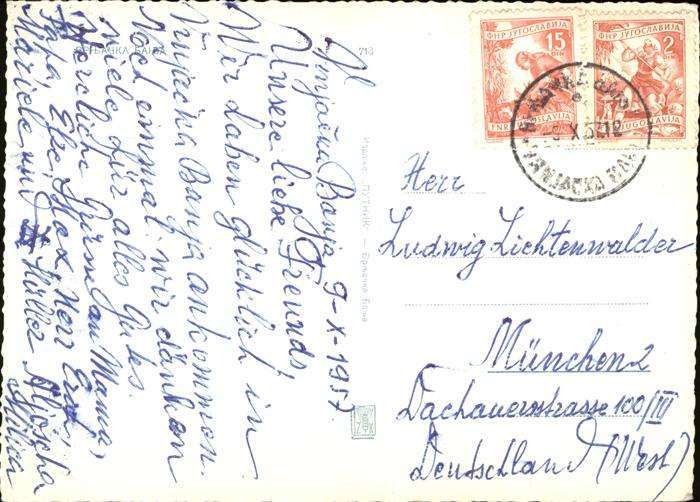 ВРЊАЧКА БАЊА
713
Vrnjačka Banja 9-X-1957.
Unsere liebe Freunds,
Wir haben glücklich in
Vrnjačka Banja ankommen.
Noch einmal wir danken
viele für alles Gutes.
Herzliche Grüsse an Mama,
Papa, Herr
Mariele und Müller
Milica
Издање: ПУТНИК — Врњачка Бања
ФНР ЈУГОСЛАВИЈА
15
DIN
FNR JUGOSLAVIJA
ФНР ЈУГОСЛАВИЈА
2
JUGOSLAVIJA
Herr
Ludwig Lichtenwalder
München 2
Dachauersstrasse 100/III
Deutschland (West)